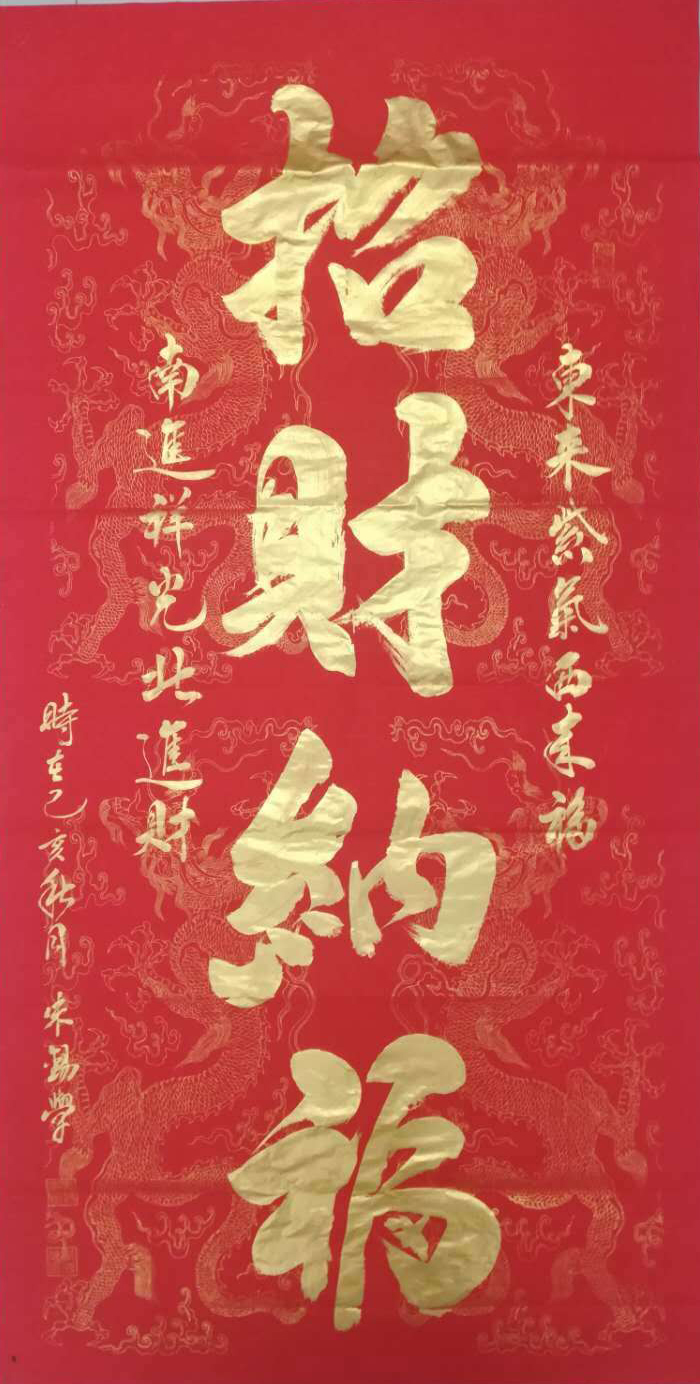 東来紫氣西来福
招財納福
南進祥光北進財
時在己亥秋月 宋錫學